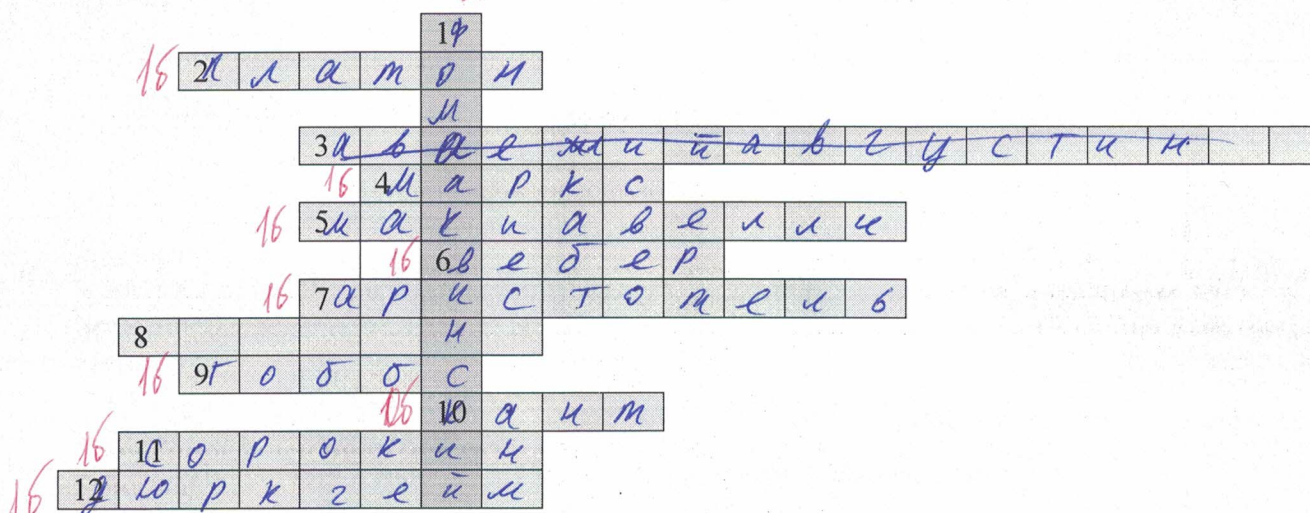 1ф
1б 2платон
м
3аваежийавгустин
1б 4маркс
1б 5макиавелли
1б 6вебер
1б 7аристотель
8 н
1б 9гоббс
10кант
1б 11сорокин
1б 12дюркгейм